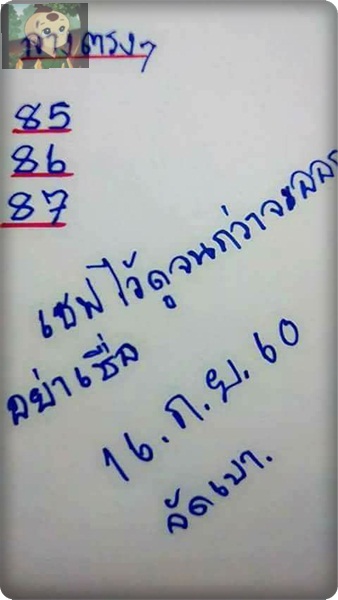 ล่างตรงๆ
85
86
87
เซฟไว้ดูจนกว่าจะออก
อย่าเชื่อ
16.ก.ย.60
จัดเบา.